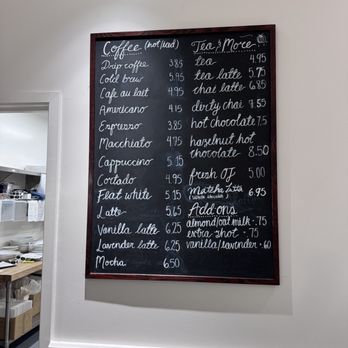 Coffee (hot/iced)
Drip coffee 3.85
Cold brew 5.95
Cafe au lait 4.95
Americano 4.15
Espresso 3.85
Macchiato 4.75
Cappuccino 5.15
Cortado 4.95
Flat white 5.15
Latte 5.65
Vanilla latte 6.25
Lavender latte 6.25
Mocha 6.50
Tea & More
tea 4.95
tea latte 5.75
chai latte 6.85
dirty chai 7.55
hot chocolate 7.5
hazelnut hot
chocolate 8.50
fresh OJ 5.00
Matcha Latte 6.95
Add ons
almond/oat milk .75
extra shot .75
vanilla/lavender .60